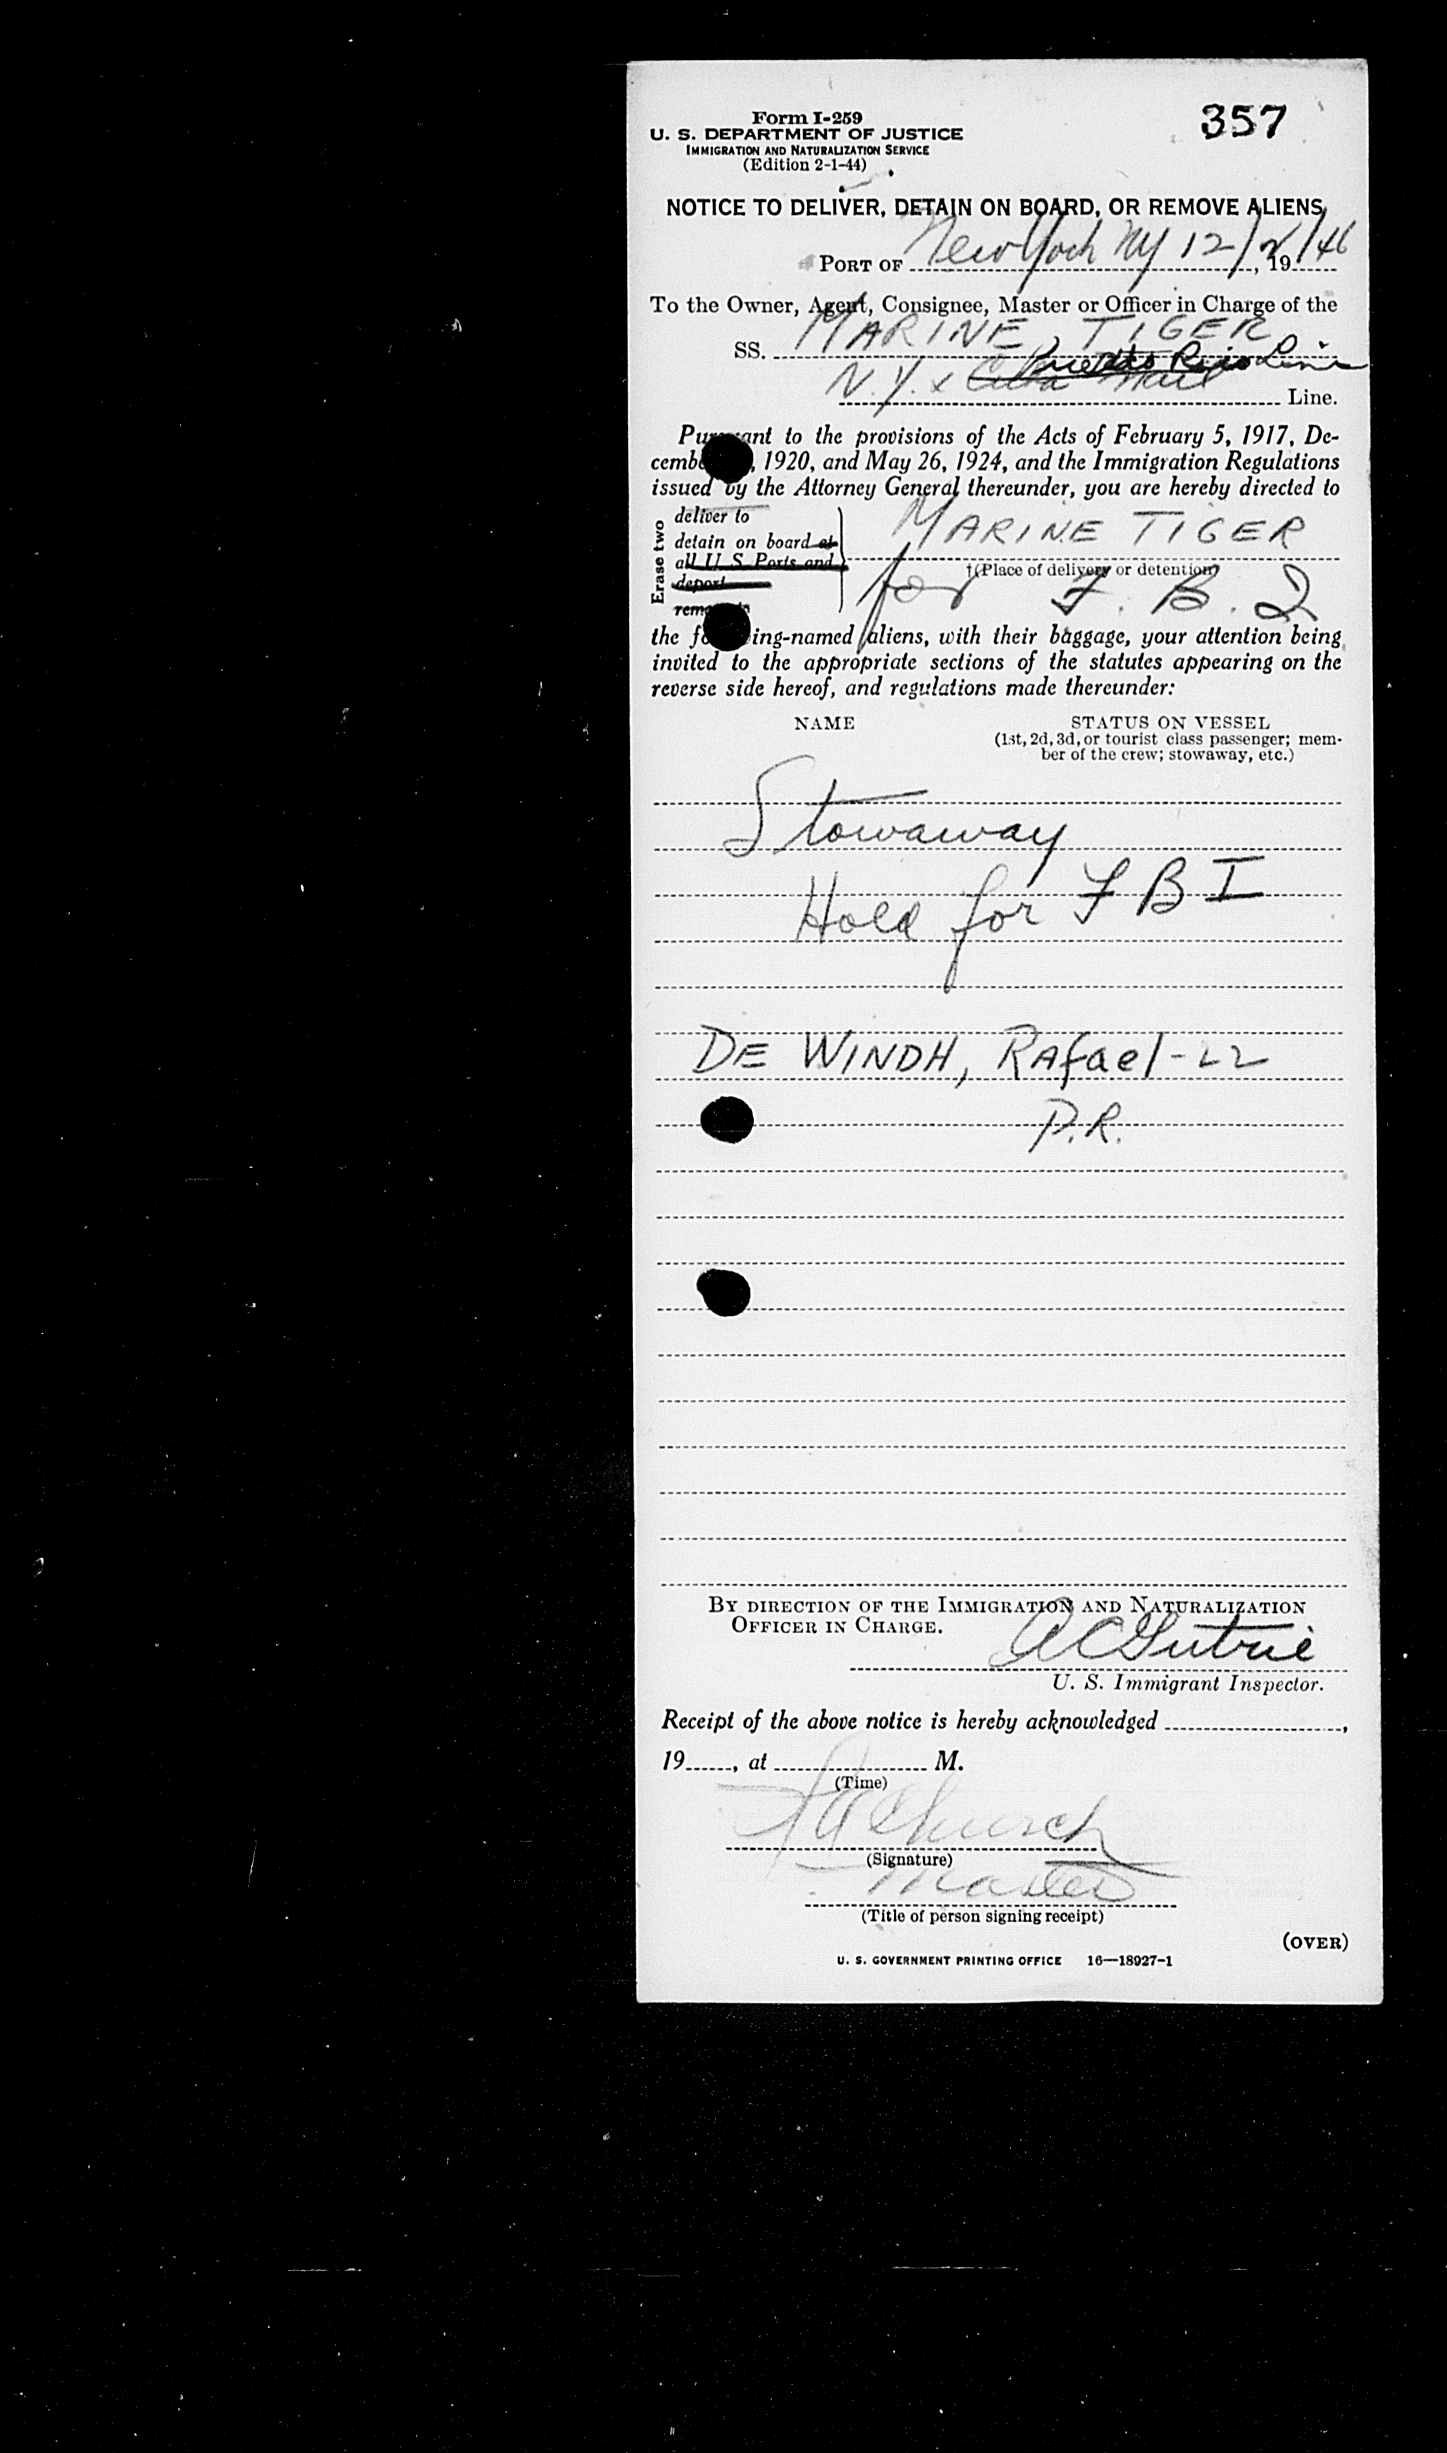 Form I-259
U. S. DEPARTMENT OF JUSTICE
IMMIGRATION AND NATURALIZATION SERVICE
(Edition 2-1-44)
357
NOTICE TO DELIVER, DETAIN ON BOARD, OR REMOVE ALIENS
PORT OF New York NY 12/2/46, 19
To the Owner, Agent, Consignee, Master or Officer in Charge of the
SS. MARINE TIGER
Puerto Rico Line
N.Y. & Cuba Mail Line.
Pursuant to the provisions of the Acts of February 5, 1917, De-
cemb , 1920, and May 26, 1924, and the Immigration Regulations
issued by the Attorney General thereunder, you are hereby directed to
Erase two
deliver to
detain on board at
all U S Ports and
deport
remove
MARINE TIGER
†(Place of delivery or detention)
for F. B. I
the following-named aliens, with their baggage, your attention being
invited to the appropriate sections of the statutes appearing on the
reverse side hereof, and regulations made thereunder:
NAME
STATUS ON VESSEL
(1st, 2d, 3d, or tourist class passenger; mem-
ber of the crew; stowaway, etc.)
Stowaway
Hold for F B I
DE WINDH, Rafael - 22
P.R.
BY DIRECTION OF THE IMMIGRATION AND NATURALIZATION
OFFICER IN CHARGE.
A C Gutrie
U. S. Immigrant Inspector.
Receipt of the above notice is hereby acknowledged ,
19 , at M.
(Time)
Church
(Signature)
Master
(Title of person signing receipt)
(OVER)
U. S. GOVERNMENT PRINTING OFFICE 16—18927-1